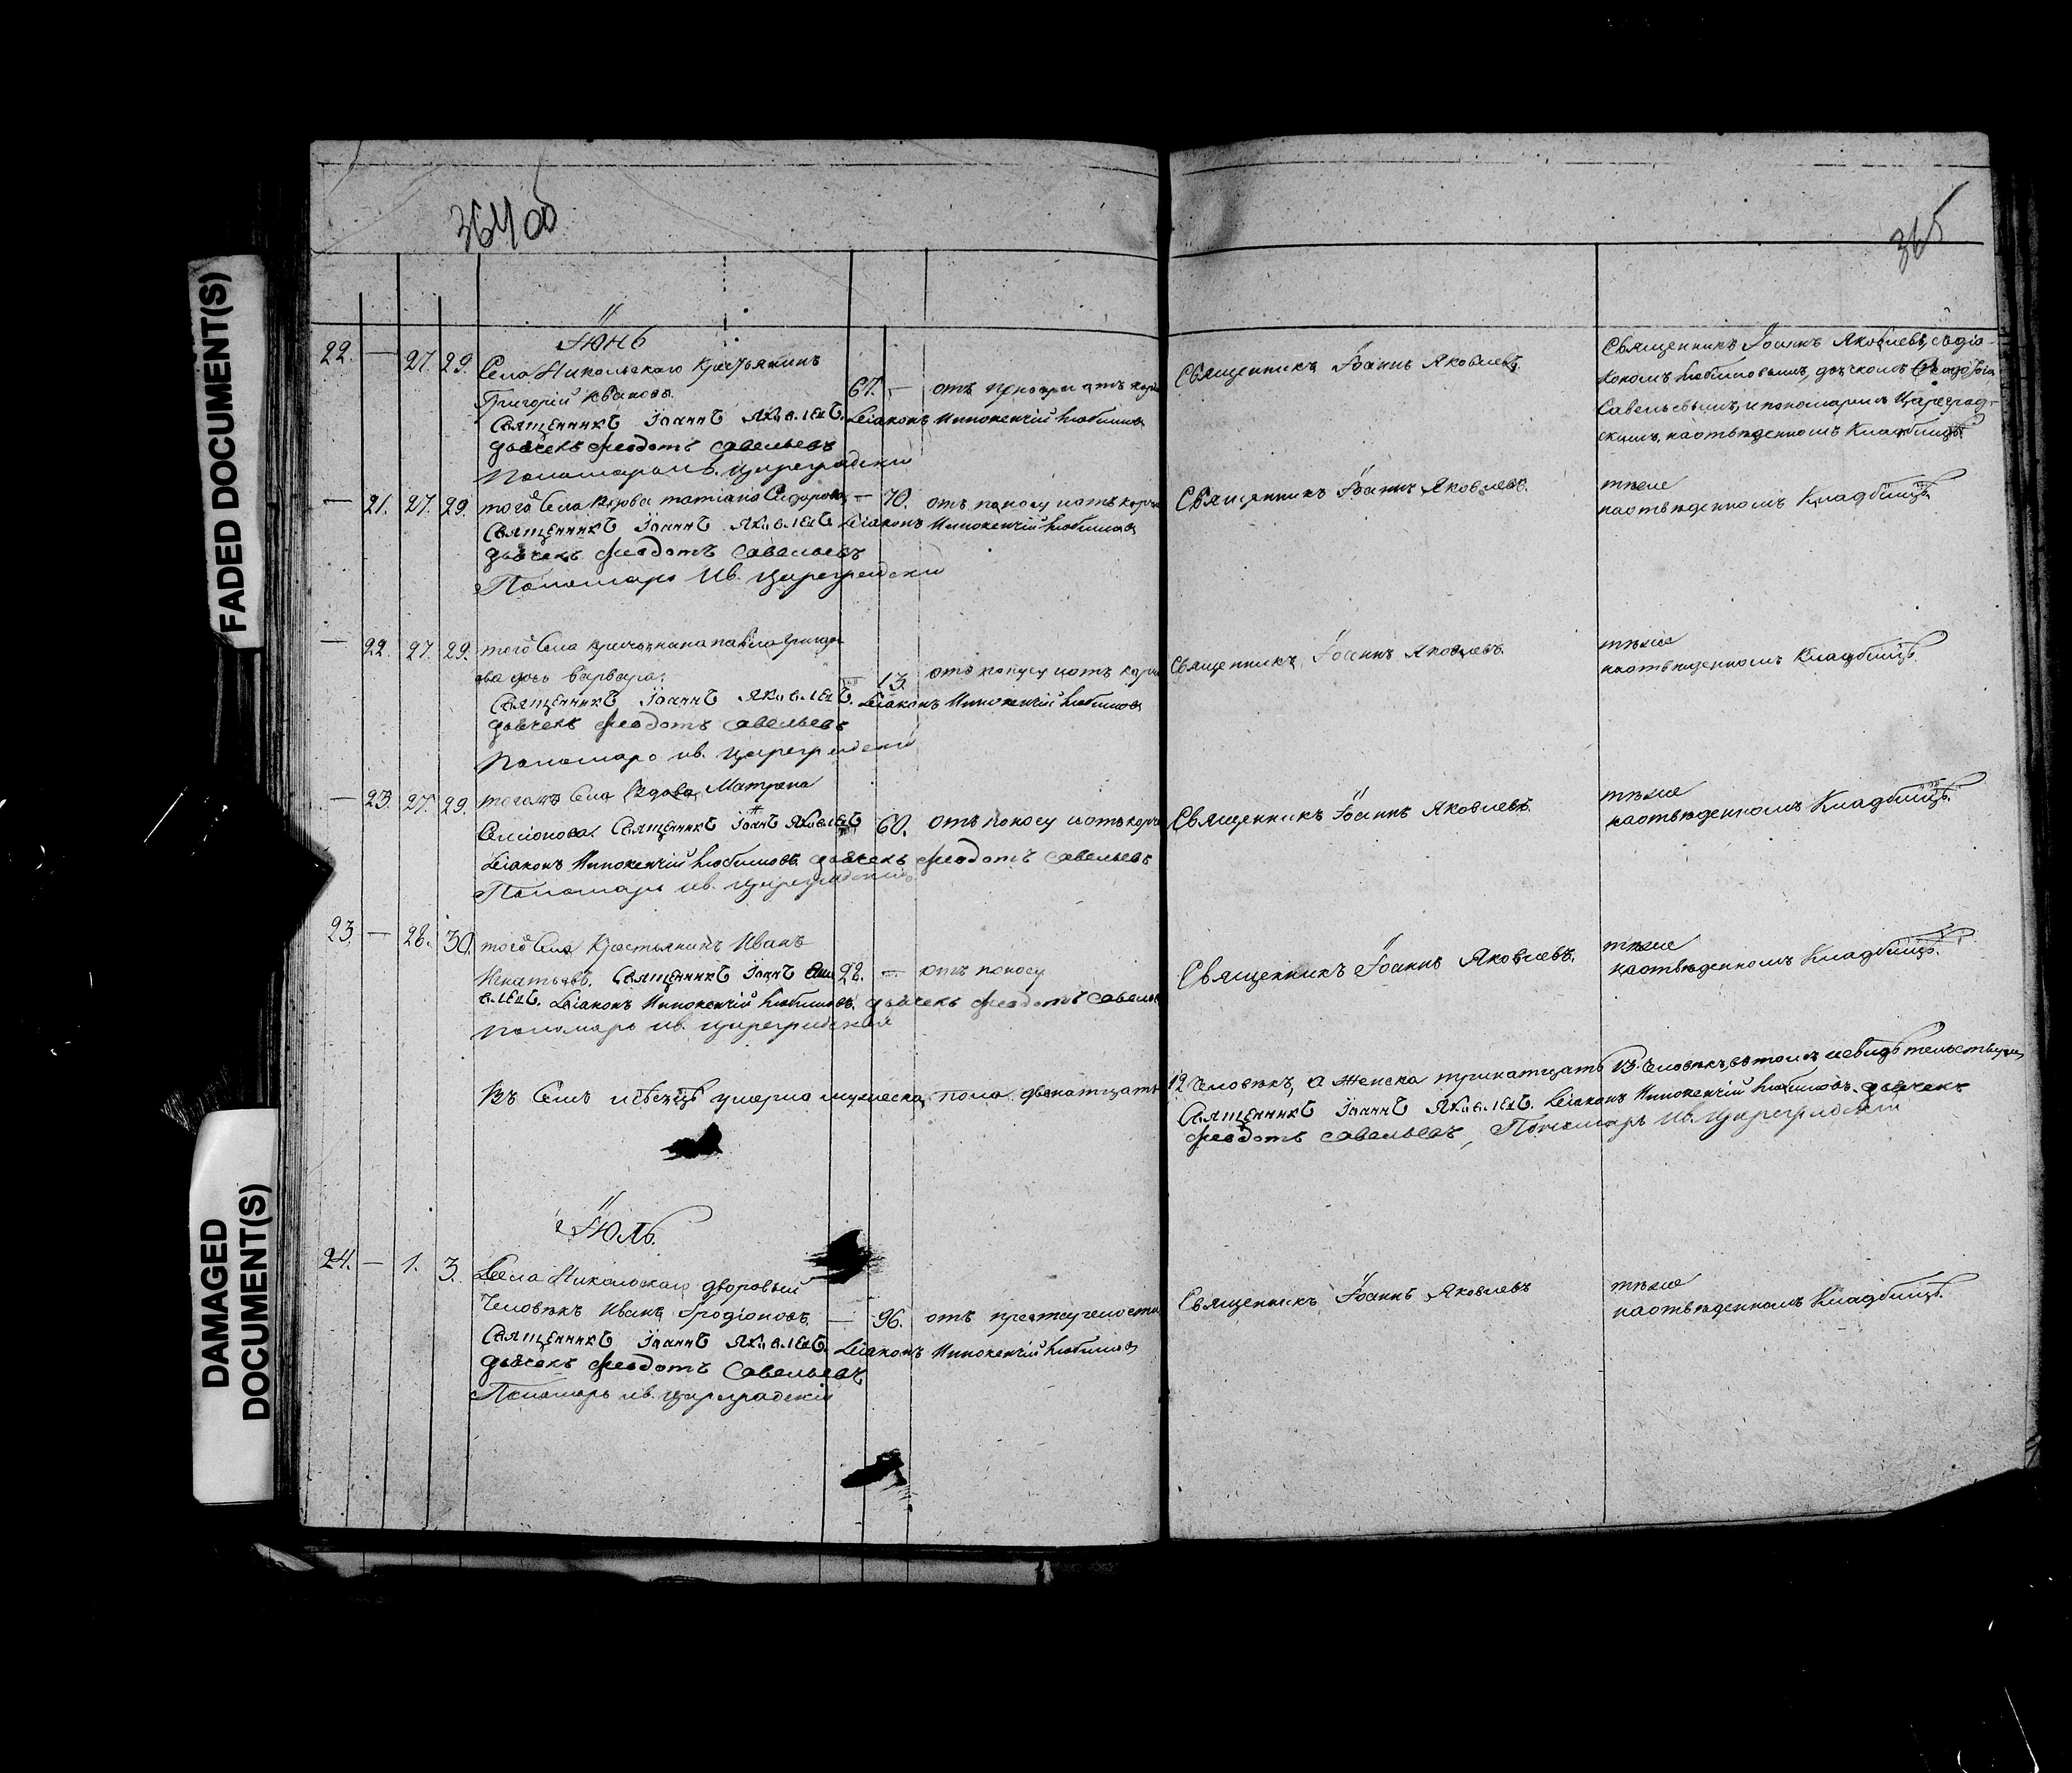 FADED DOCUMENT(S)
DAMAGED DOCUMENT(S)
364 об
365
Іюнь
22. — 27. 29. Села Никольскаго Крестьянинъ
Григорій Ивановъ. 67. —
Священникъ Іоаннъ Яковлевъ. Діаконъ Иннокентій Любимовъ
дьячекъ Феодотъ Савельевъ
Пономарь Ив. Цареградскій
Священникъ Іоаннъ Яковлевъ.
Священникъ Іоаннъ Яковлевъ, съ діа-
кономъ Любимовымъ, дьячкомъ Феодотомъ
Савельевымъ, и пономаремъ Цареград-
скимъ, на отведенномъ Кладбищѣ.
— 21. 27. 29. того Села Вдова татіана Сидорова — 70. отъ поносу и отъ
Священникъ Іоаннъ Яковлевъ Діаконъ Иннокентій Любимовъ
дьячекъ Феодотъ Савельевъ
Пономарь Ив. Цареградскій
Священникъ Іоаннъ Яковлевъ.
тѣже
на отведенномъ Кладбищѣ
— 22. 27. 29. того Села Крестьянина павла
дочь Варвара. 13. отъ поносу и отъ
Священникъ Іоаннъ Яковлевъ. Діаконъ Иннокентій Любимовъ
дьячекъ Феодотъ Савельевъ
Пономарь ив. Цареградскій
Священникъ Іоаннъ Яковлевъ.
тѣже
на отведенномъ Кладбищѣ.
— 23. 27. 29. тогожъ Села Вдова Матрена
Семіонова. Священникъ Іоаннъ Яковлевъ 60. отъ поносу и отъ
Діаконъ Иннокентій Любимовъ. дьячекъ Феодотъ Савельевъ
Пономарь ив. Цареградскій.
Священникъ Іоаннъ Яковлевъ.
тѣже
на отведенномъ Кладбищѣ.
23. — 28. 30. того Села Крестьянинъ Иванъ
Игнатьевъ. Священникъ Іоаннъ Яко 22. — отъ поносу
влевъ. Діаконъ Иннокентій Любимовъ. дьячекъ Феодотъ Савельевъ
Пономарь ив. Цареградскій
Священникъ Іоаннъ Яковлевъ.
тѣже
на отведенномъ Кладбищѣ.
Въ Семъ мѣсецѣ умерло мужеска пола двенатцать 12 Человѣкъ, а женска тринатцать 13. Человѣкъ, въ томъ и свидѣтельствуемъ
Священникъ Іоаннъ Яковлевъ. Діаконъ Иннокентій Любимовъ. дьячекъ
Феодотъ Савельевъ, Пономарь Ив. Цареградскій
Іюль.
24. — 1. 3. Села Никольскаго дворовый
Человѣкъ Иванъ Иродіоновъ. — 96. отъ престарелости
Священникъ Іоаннъ Яковлевъ. Діаконъ Иннокентій Любимовъ
дьячекъ Феодотъ Савельевъ
Пономарь ив. Цареградскій
Священникъ Іоаннъ Яковлевъ
тѣже
на отведенномъ Кладбищѣ.